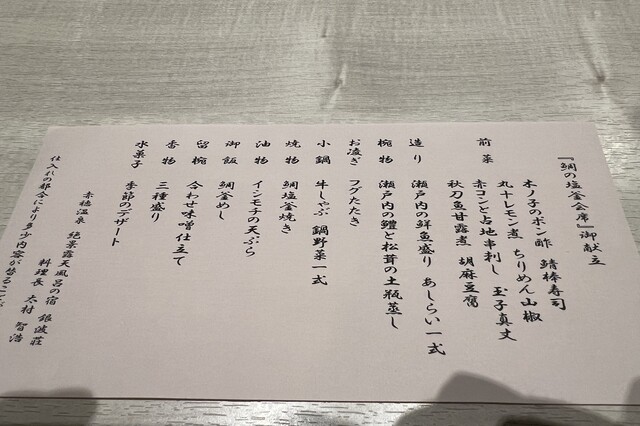 『鯛の塩釜会席』御献立
前菜 木ノ子のポン酢 鯖棒寿司
丸十レモン煮 ちりめん山椒
赤コンと占地串刺し 玉子真丈
秋刀魚甘露煮 胡麻豆腐
造り 瀬戸内の鮮魚盛り あしらい一式
椀物 瀬戸内の鱧と松茸の土瓶蒸し
お凌ぎ フグたたき
小鍋 牛しゃぶ 鍋野菜一式
焼物 鯛塩釜焼き
油物 イシモチの天ぷら
御飯 鯛釜めし
留椀 合わせ味噌仕立て
香物 三種盛り
水菓子 季節のデザート
赤穂温泉 絶景露天風呂の宿 銀波荘
料理長 大村 智浩
仕入れの都合により多少内容が替ること